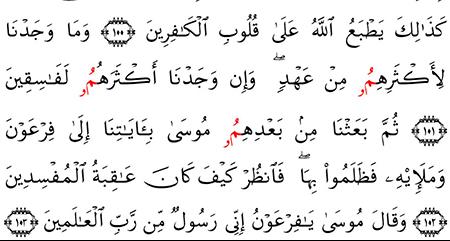 كَذَٰلِكَ يَطْبَعُ ٱللَّهُ عَلَىٰ قُلُوبِ ٱلْكَٰفِرِينَ ١٠٠ وَمَا وَجَدْنَا
لِأَكْثَرِهِمُۥ مِنْ عَهْدٍۖ وَإِن وَجَدْنَا أَكْثَرَهُمُۥ لَفَٰسِقِينَ
١٠١ ثُمَّ بَعَثْنَا مِنۢ بَعْدِهِمُۥ مُوسَىٰ بِـَٔايَٰتِنَا إِلَىٰ فِرْعَوْنَ
وَمَلَإِي۟هِۦ فَظَلَمُوا۟ بِهَاۖ فَٱنظُرْ كَيْفَ كَانَ عَٰقِبَةُ ٱلْمُفْسِدِينَ
١٠٢ وَقَالَ مُوسَىٰ يَٰفِرْعَوْنُ إِنِّي رَسُولٌ مِّن رَّبِّ ٱلْعَٰلَمِينَ ١٠٣